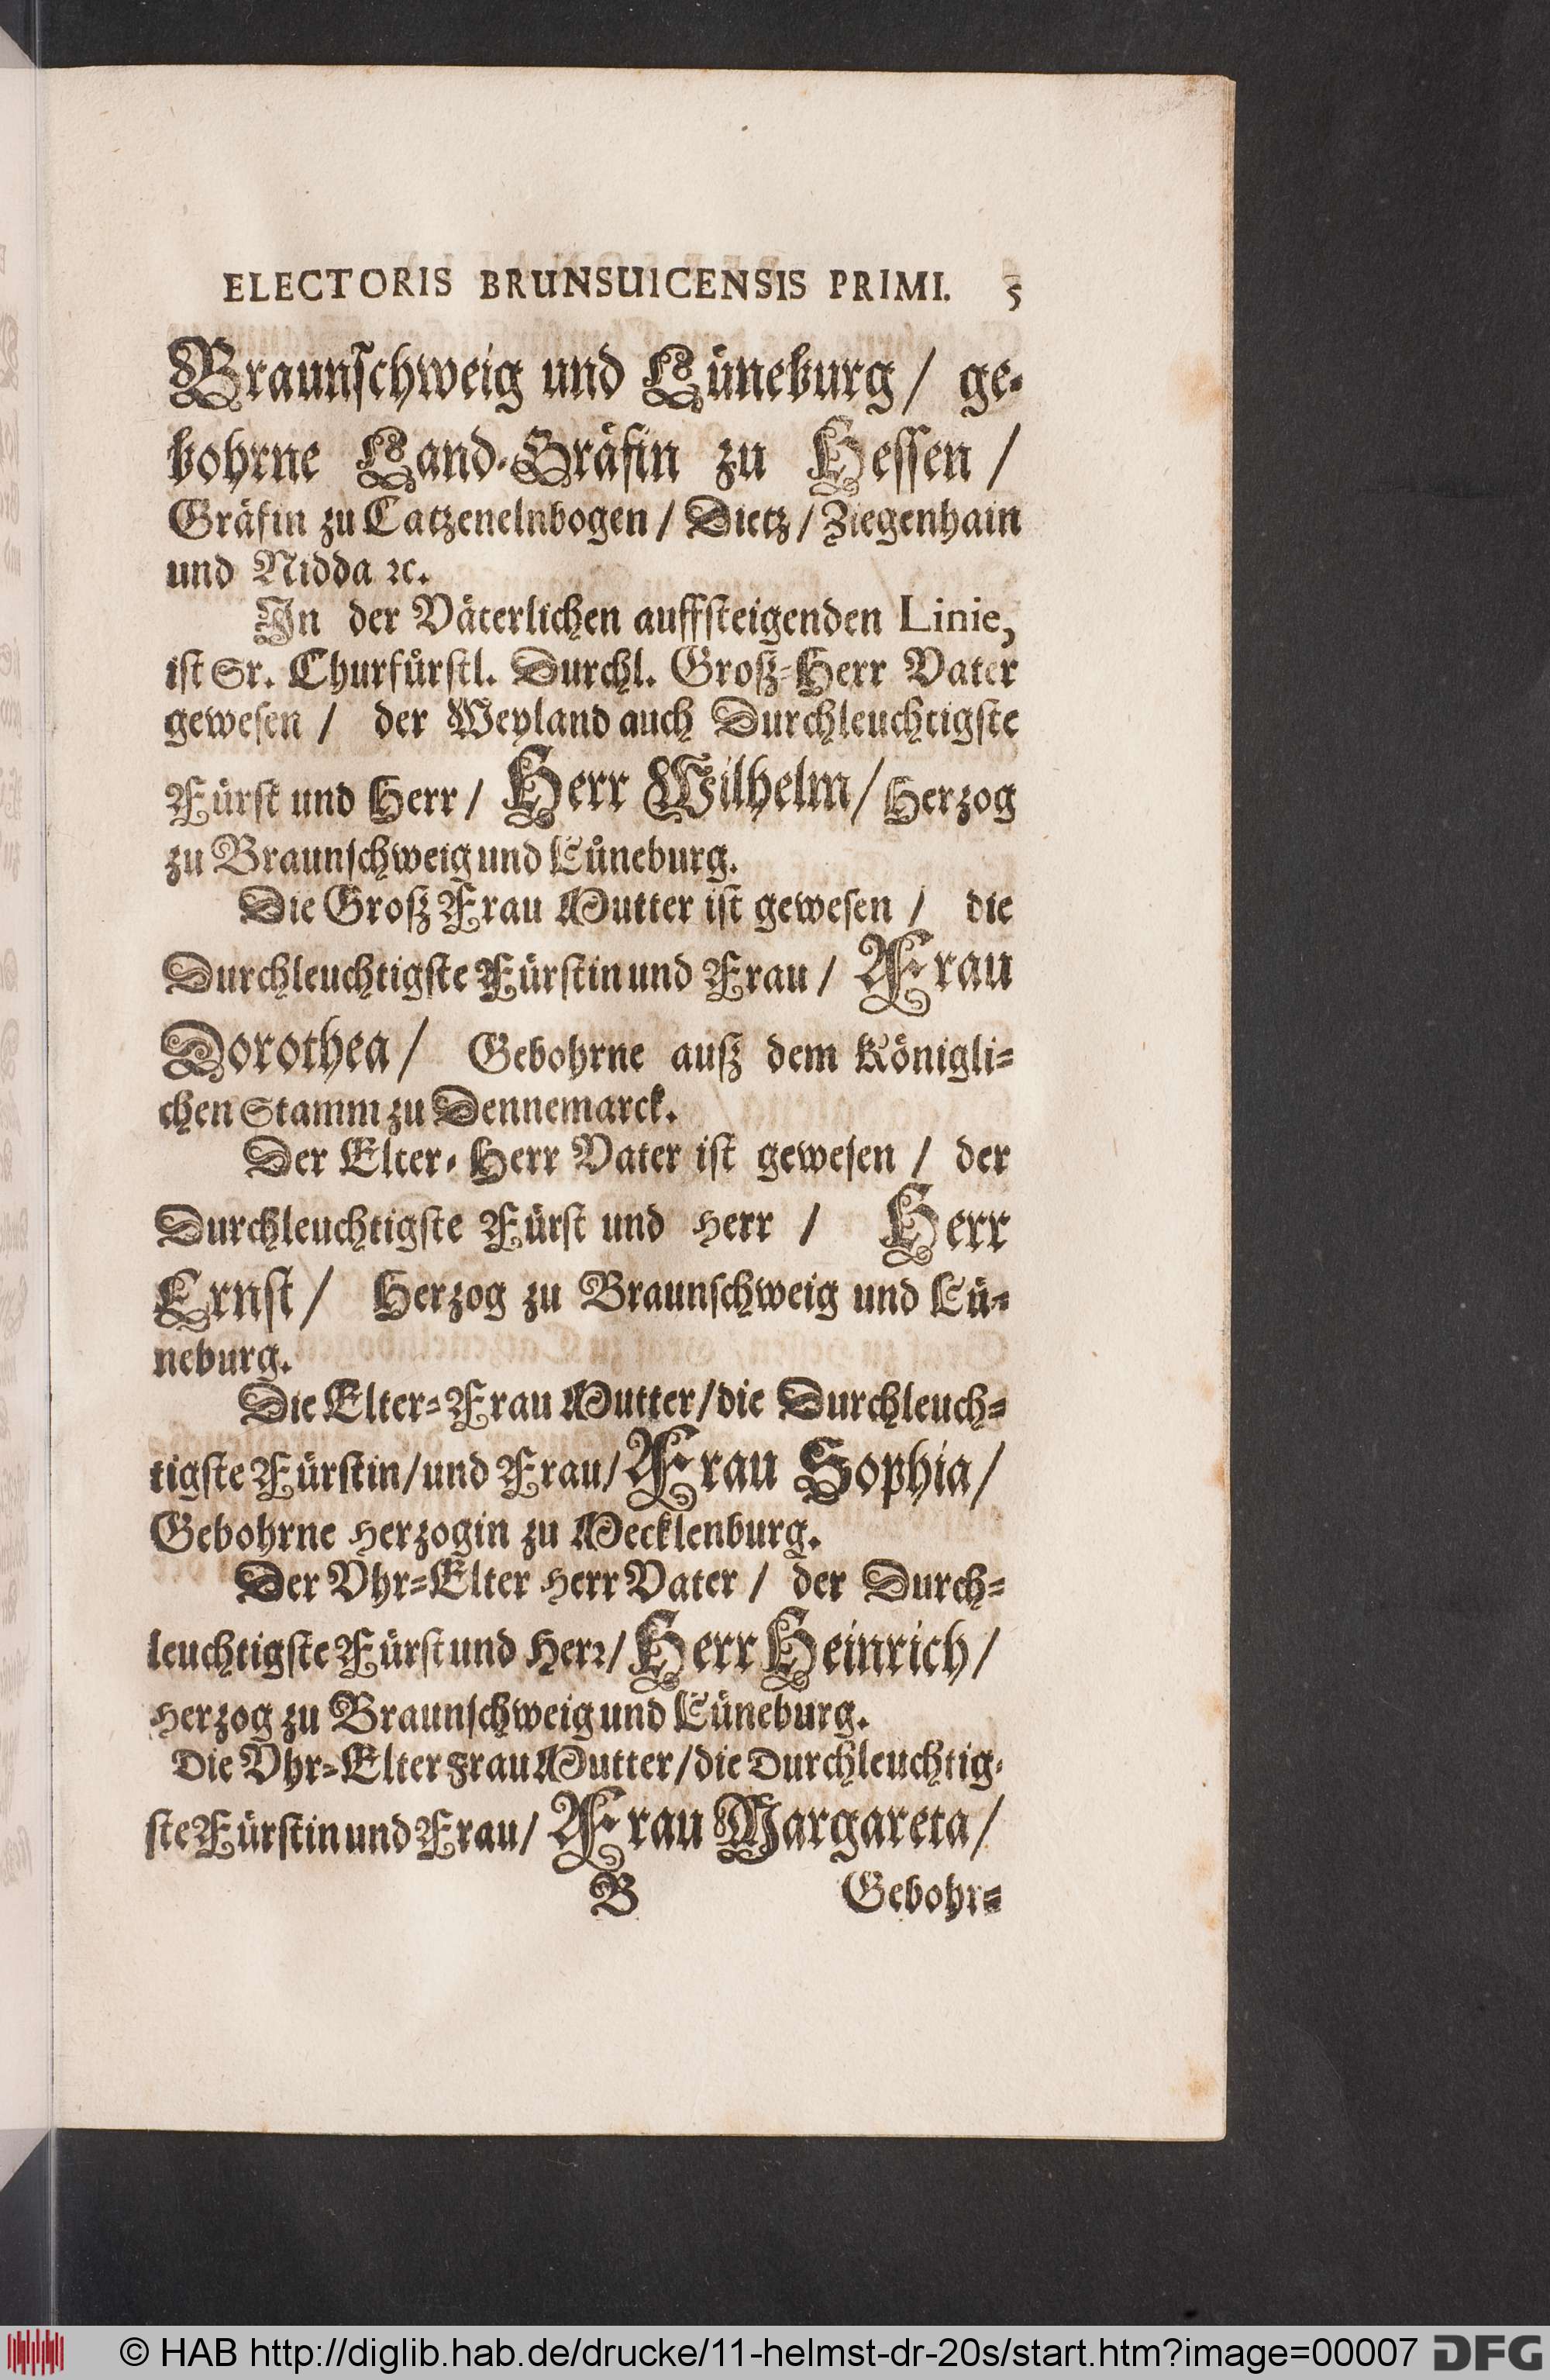 ELECTORIS BRUNSUICENSIS PRIMI. 5
Braunſchweig und Lüneburg/ ge-
bohrne Land-Gräfin zu Heſſen/
Gräfin zu Catzenelnbogen/ Dietz/ Ziegenhain
und Nidda ꝛc.
In der Väterlichen auffſteigenden Linie,
iſt Sr. Churfürſtl. Durchl. Groß-Herr Vater
geweſen/ der Weyland auch Durchleuchtigſte
Fürſt und Herr/ Herr Wilhelm/ Herzog
zu Braunſchweig und Lüneburg.
Die Groß Frau Mutter iſt geweſen/ die
Durchleuchtigſte Fürſtin und Frau/ Frau
Dorothea/ Gebohrne auß dem Königli-
chen Stamm zu Dennemarck.
Der Elter-Herr Vater iſt geweſen/ der
Durchleuchtigſte Fürſt und Herr/ Herr
Ernſt/ Herzog zu Braunſchweig und Lü-
neburg.
Die Elter-Frau Mutter/ die Durchleuch-
tigſte Fürſtin/ und Frau/ Frau Sophia/
Gebohrne Herzogin zu Mecklenburg.
Der Vhr-Elter Herr Vater/ der Durch-
leuchtigſte Fürſt und Herꝛ/ Herr Heinrich/
Herzog zu Braunſchweig und Lüneburg.
Die Vhr-Elter Frau Mutter/ die Durchleuchtig-
ſte Fürſtin und Frau/ Frau Margareta/
B Gebohr-
© HAB http://diglib.hab.de/drucke/11-helmst-dr-20s/start.htm?image=00007 DFG